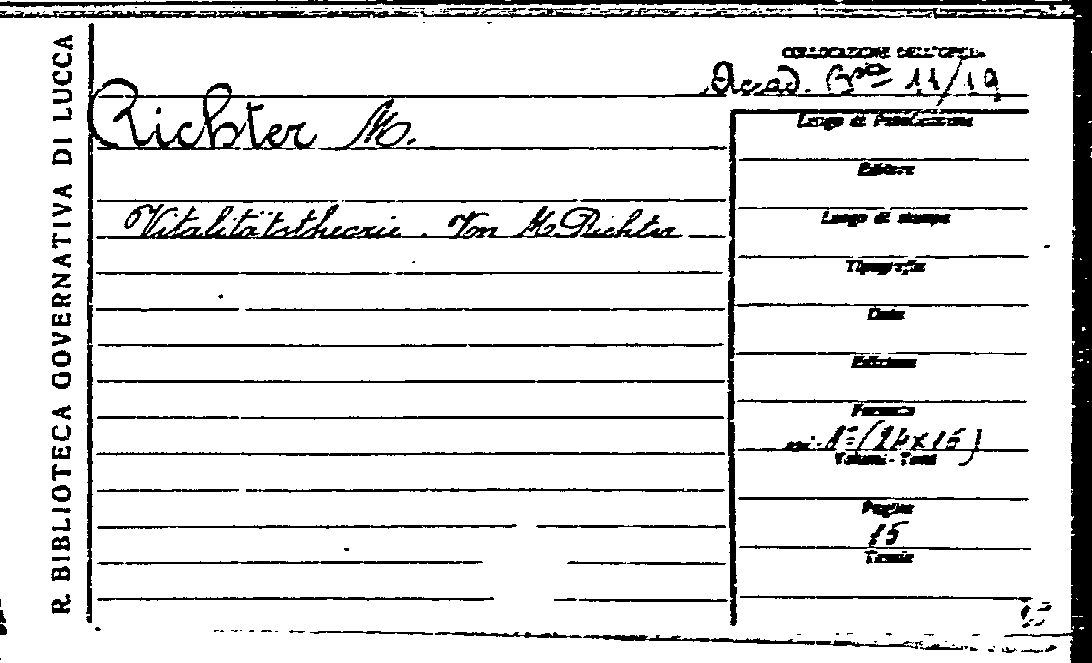 R. BIBLIOTECA GOVERNATIVA DI LUCCA
COLLOCAZIONE DELL'OPERA
Accad. Bna 11/19
Richter M.
Vitalitätstheorie. Von M. Richter
Luogo di Pubblicazione
Editore
Luogo di stampa
Tipografia
Data
Edizione
Formato
in 8° (24x16)
Volumi - Tomi
Pagine
15
Tavole